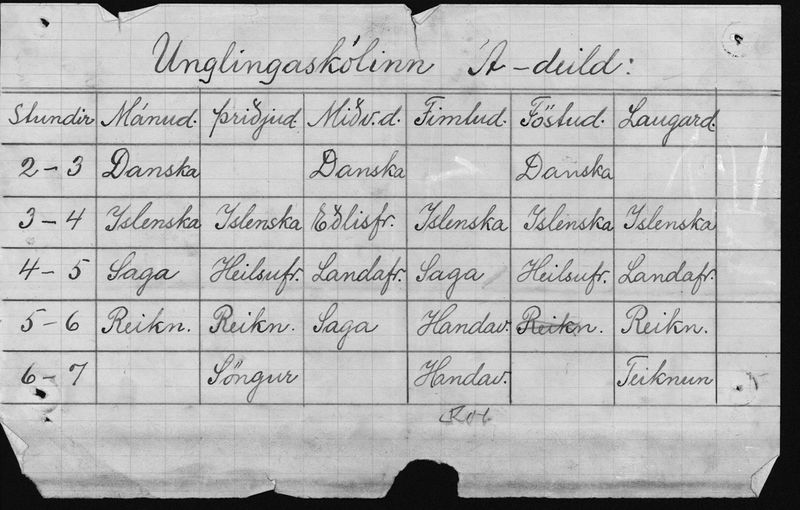 Unglingaskólinn Á-deild:
Stundir Mánud. þriðjud. Miðv.d. Fimtud. Föstud. Laugard.
2-3 Danska Danska Danska
3-4 Islenska Islenska Eðlisfr. Islenska Islenska Islenska
4-5 Saga Heilsufr. Landafr. Saga Heilsufr. Landafr.
5-6 Reikn. Reikn. Saga Handav. Reikn. Reikn.
6-7 Söngur Handav. Teiknun